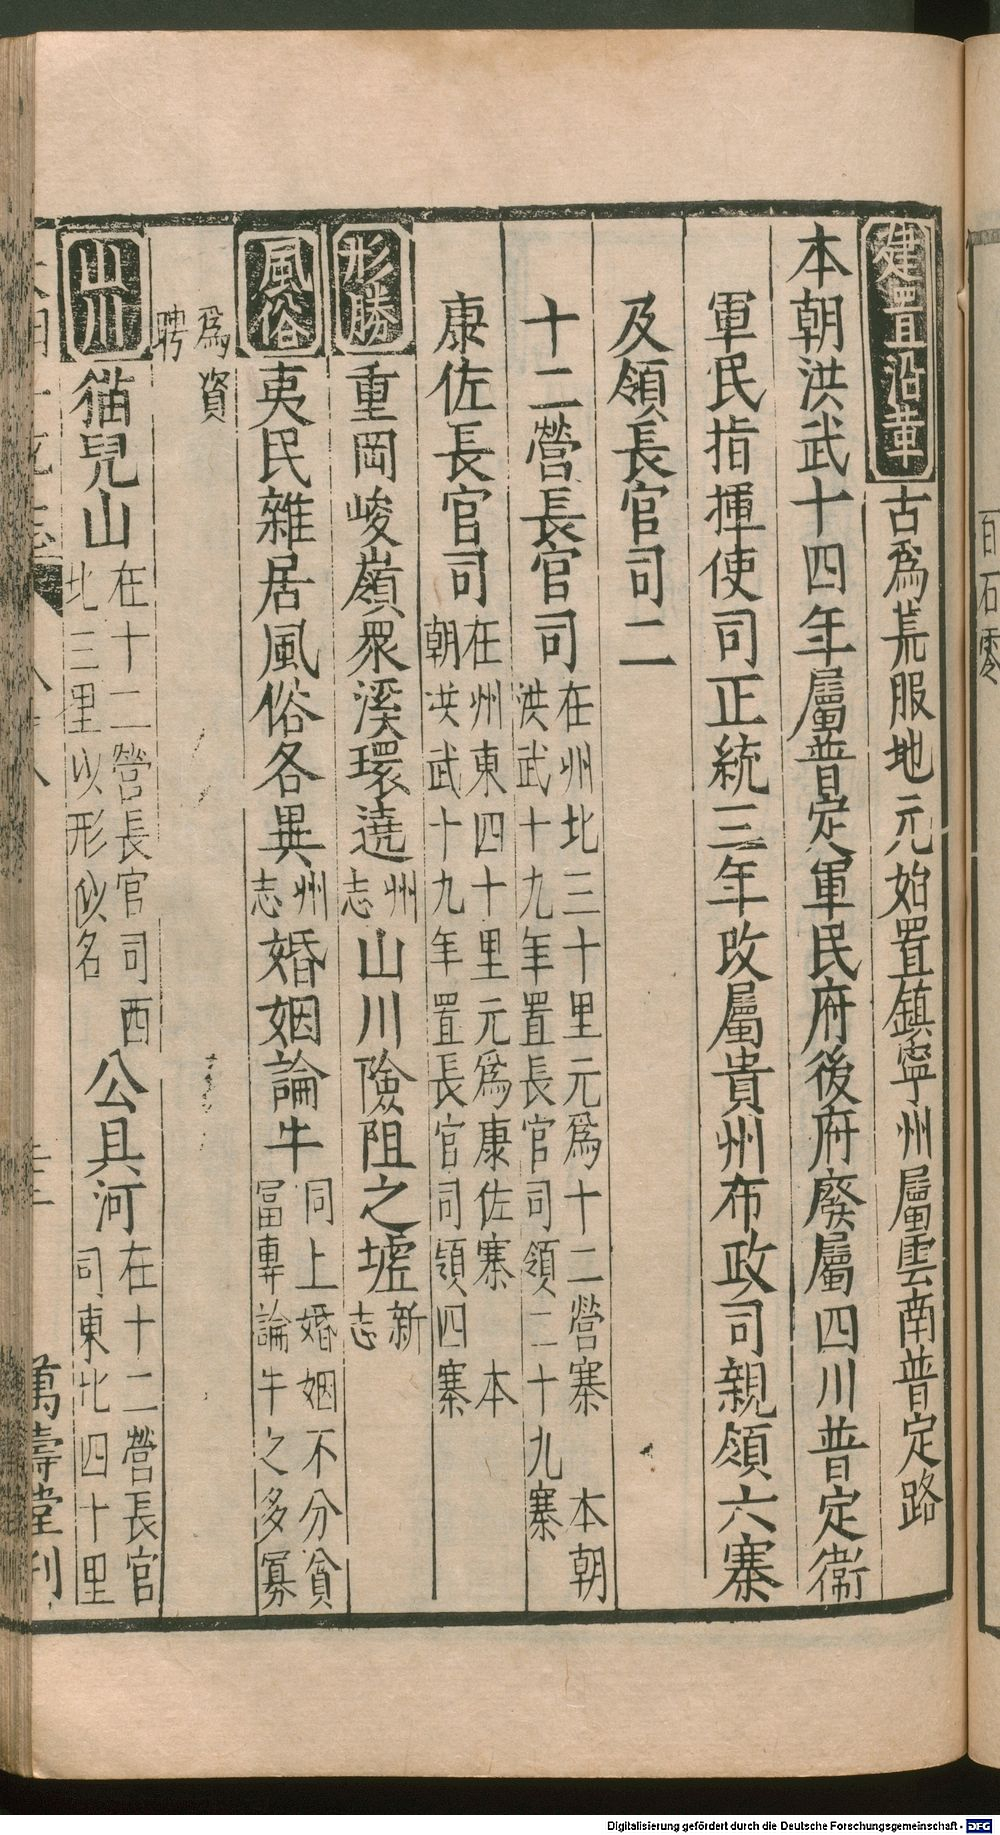 建置沿革古爲荒服地元始置鎮寧州屬雲南普定路
本朝洪武十四年屬普定軍民府後府廢屬四川普定衛
軍民指揮使司正統三年改屬貴州布政司親領六寨
及領長官司二
十二營長官司在州北三十里元爲十二營寨 本朝
洪武十九年置長官司領二十九寨
康佐長官司在州東四十里元爲康佐寨 本
朝洪武十九年置長官司領四寨
形勝重岡峻嶺衆溪環遶州志山川險阻之墟新志
風俗夷民雜居風俗各異州志婚姻論牛同上婚姻不分貧
冨專論牛之多寡
爲資
聘
山川猫兒山在十二營長官司西
北三里以形似名
公具河在十二營長官
司東北四十里
萬壽堂刊
百石零
Digitalisierung gefördert durch die Deutsche Forschungsgemeinschaft - DFG